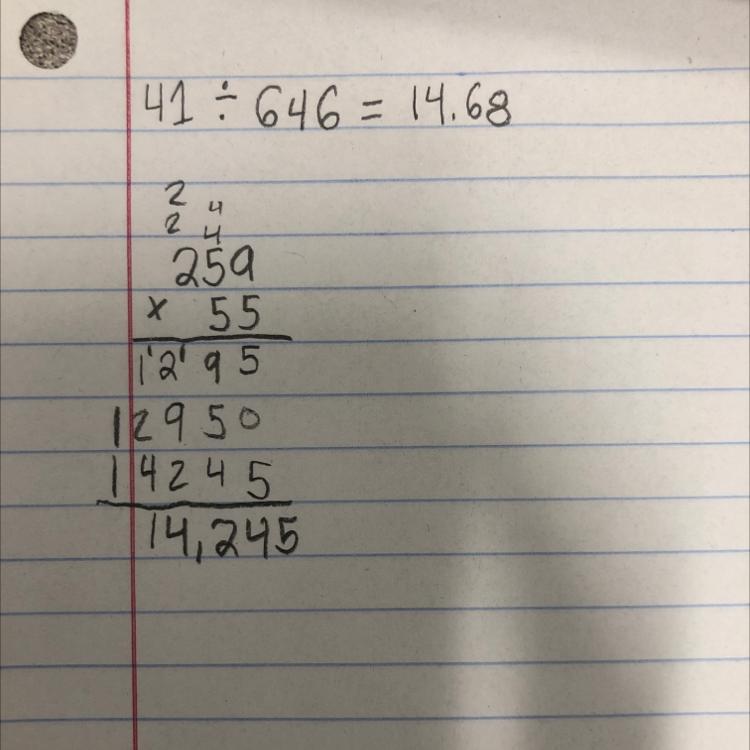 41 ÷ 646 = 14.68
2 4
2 4
259
× 55
1'2'95
12950
14245
14,245